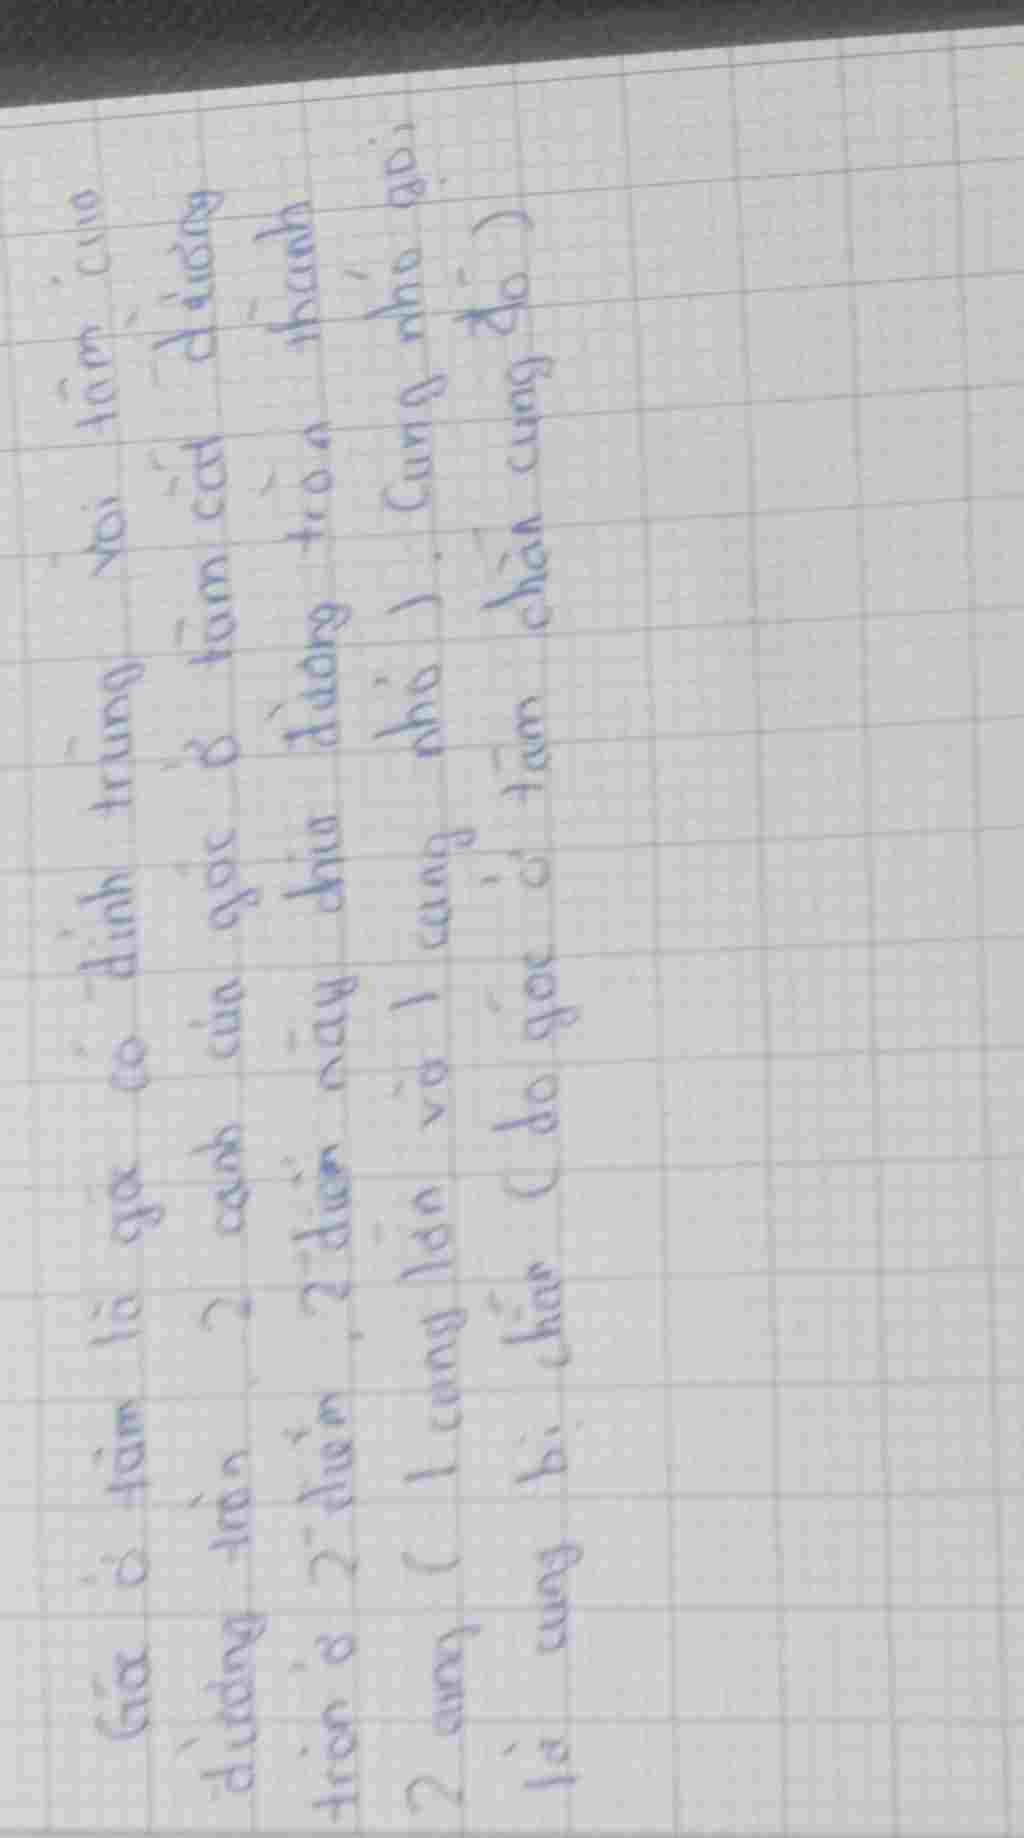 Góc ở tâm là góc có đỉnh trùng với tâm của
đường tròn. 2 cạnh của góc ở tâm cắt đường
tròn ở 2 điểm, 2 điểm này chia đường tròn thành
2 cung (1 cung lớn và 1 cung nhỏ). Cung nhỏ gọi
là cung bị chắn (do góc ở tâm chắn cung đó)